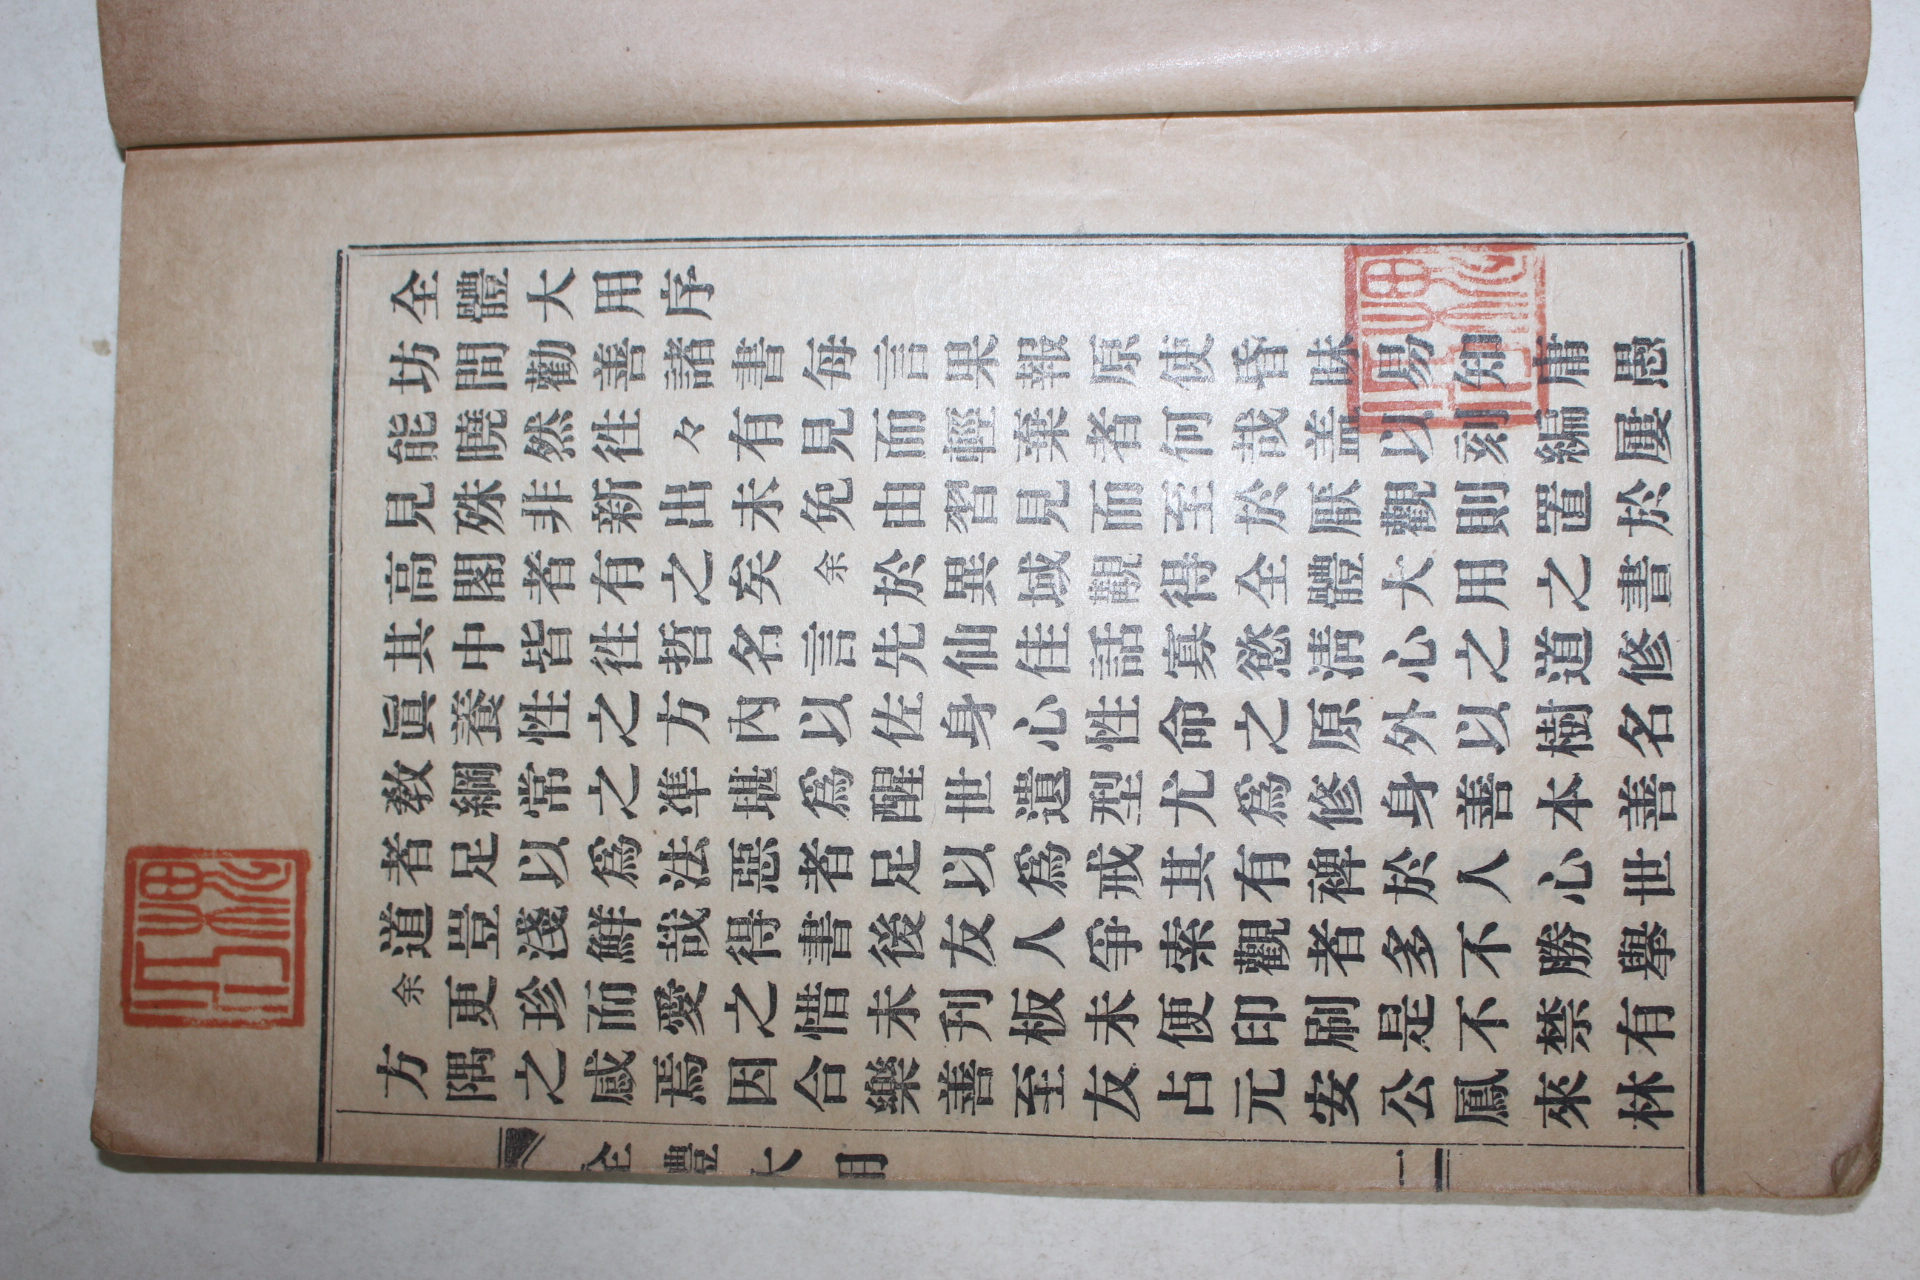 全體大用序
坊間勸善諸書每言果報原使昏昧易知庸愚
能曉然徃々有見而輕棄者何哉盖以刻編屢
見殊非新出未免由習見而至於厭觀則置於
高閣者有之矣余於異域覯得全體大用之書
其中皆徃哲名言先仙佳話寡慾淸心之道修
眞養性之方內以佐身心性命之原外以樹名
敎綱常之凖堪爲醒世遺型尤爲修身善本善
者足以爲法惡者足以爲戒其有裨於人心世
道豈淺鮮哉得書後友人爭索觀者多不勝擧
余更珍而愛之惜未刊板未便印刷是不禁有
方隅之感焉因合樂善至友占元安公鳳來林
全體大用
二